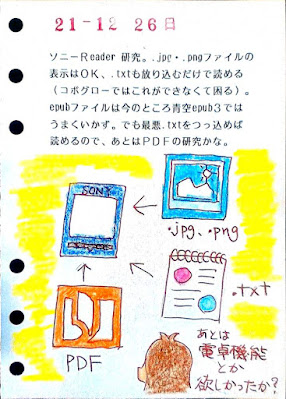 21-12 26日
ソニーReader 研究。.jpg・.pngファイルの
表示はOK、.txtも放り込むだけで読める
(コボグローではこれができなくて困る)。
epubファイルは今のところ青空epub3では
うまくいかず。でも最悪.txtをつっ込めば
読めるので、あとはPDFの研究かな。
SONY
.jpg、.png
.txt
PDF
あとは
電卓機能
とか
欲しかったか?